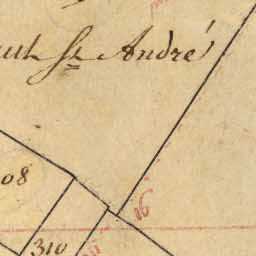 St André
16
08
310